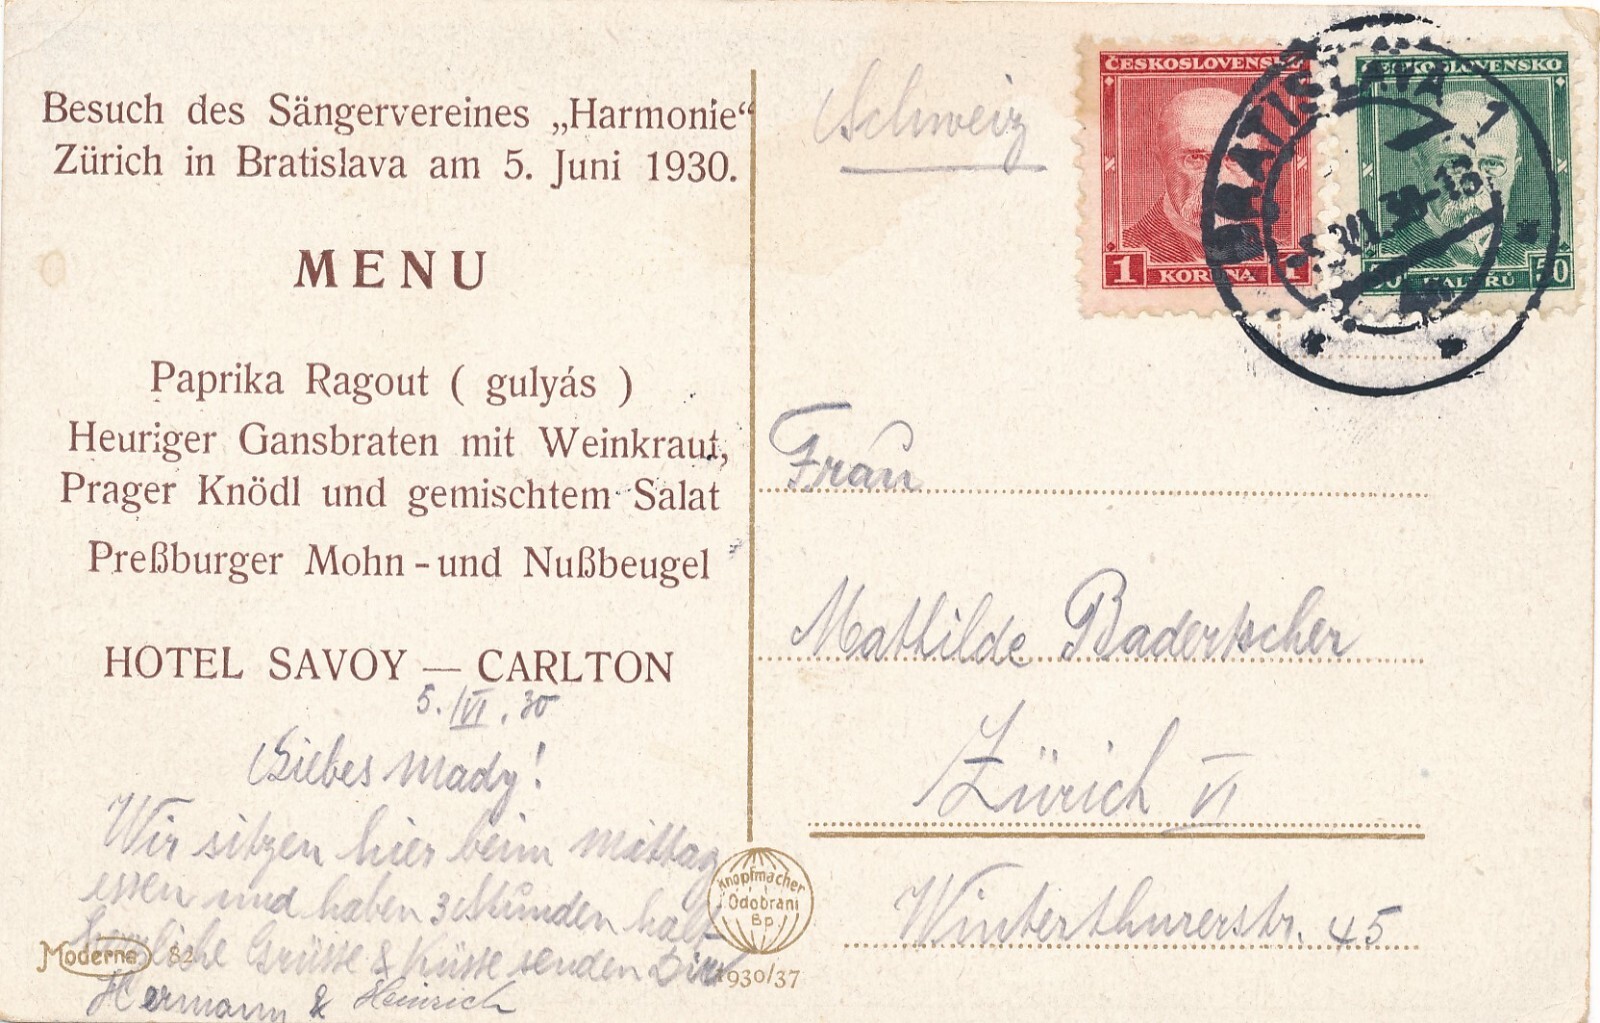 Besuch des Sängervereines „Harmonie“
Zürich in Bratislava am 5. Juni 1930.
MENU
Paprika Ragout ( gulyás )
Heuriger Gansbraten mit Weinkraut,
Prager Knödl und gemischtem Salat
Preßburger Mohn - und Nußbeugel
HOTEL SAVOY — CARLTON
5. VI. 30
Liebes Mady!
Wir sitzen hier beim Mittag
essen und haben 3 Stunden halt
herzliche Grüsse & Küsse senden Dir
Hermann & Heinrich
Moderna 82
Knopfmacher
Odobrani
Bp.
1930/37
Schweiz
ČESKOSLOVENSKO
1 KORUNA 1
ČESKOSLOVENSKO
50 HALÉŘŮ 50
BRATISLAVA 1
Frau
Mathilde Badertscher
Zürich VI
Winterthurerstr. 45